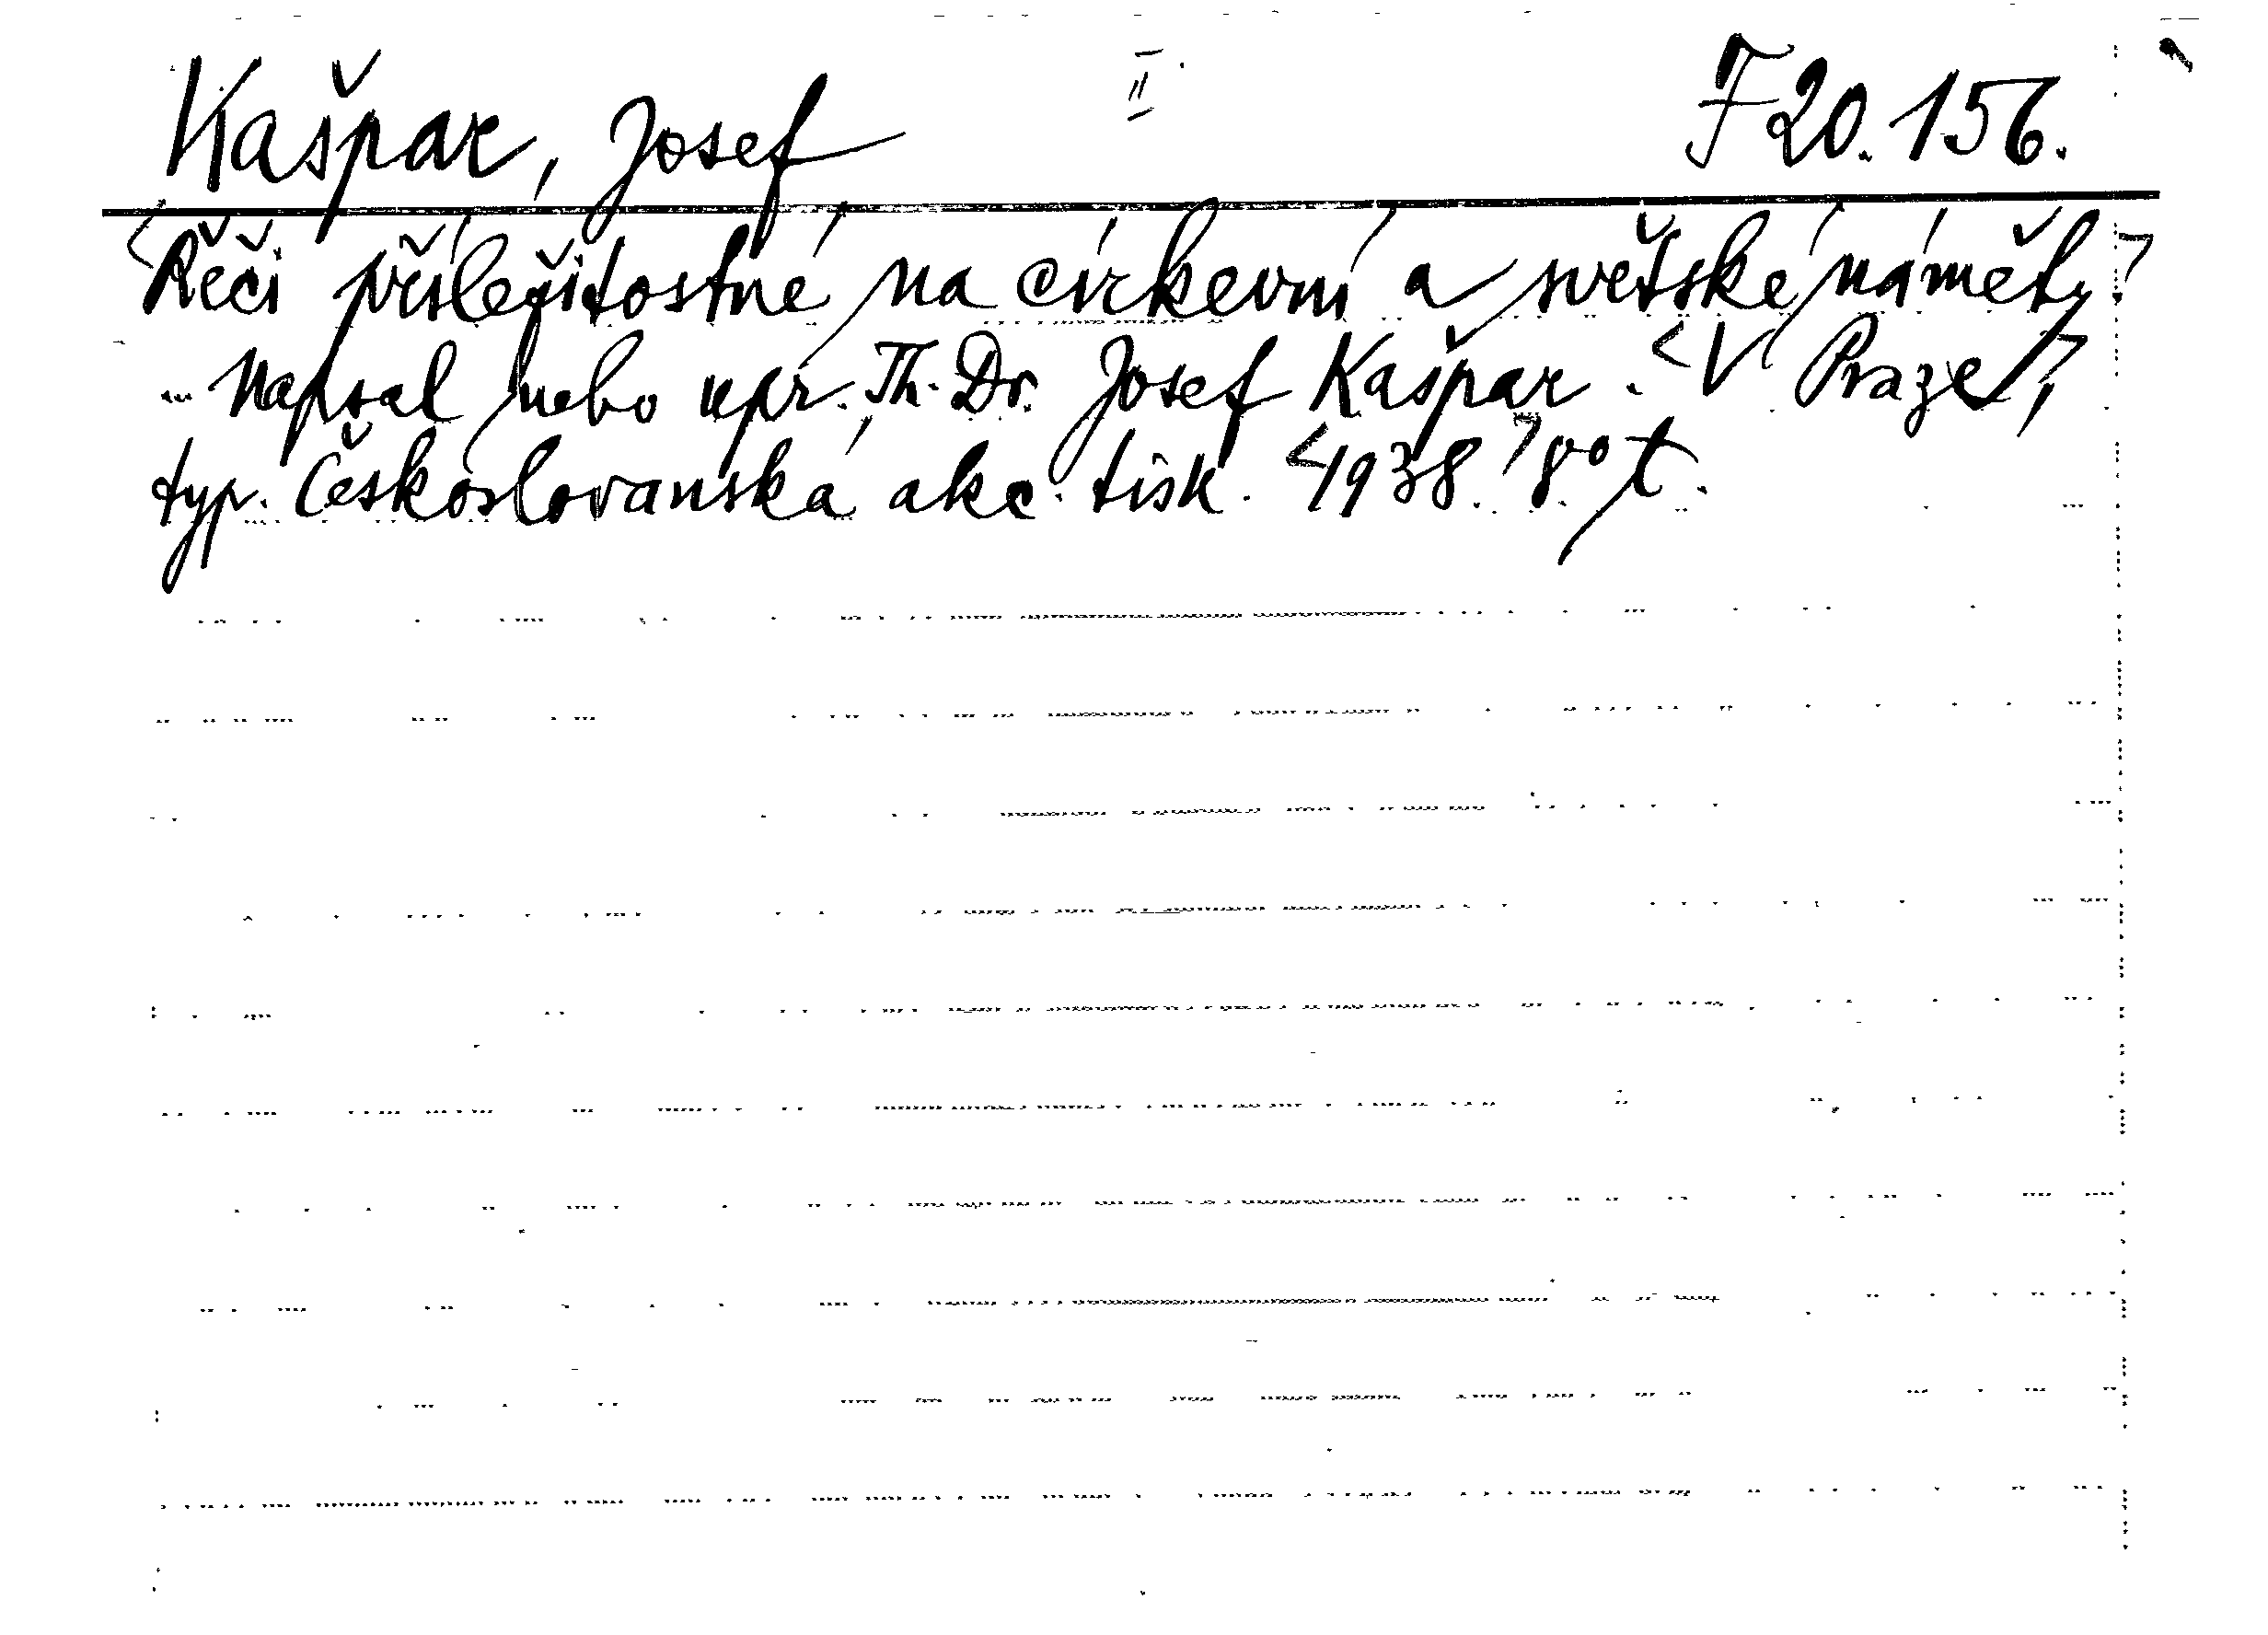 Kašpar, Josef II. F 20.156.
<Řeči příležitostné na církevní a světské náměty>
... Napsal nebo upr. Th. Dr. Josef Kašpar. <V Praze>,
typ. Českoslovanská akc. tisk. <1938.> 8° t.